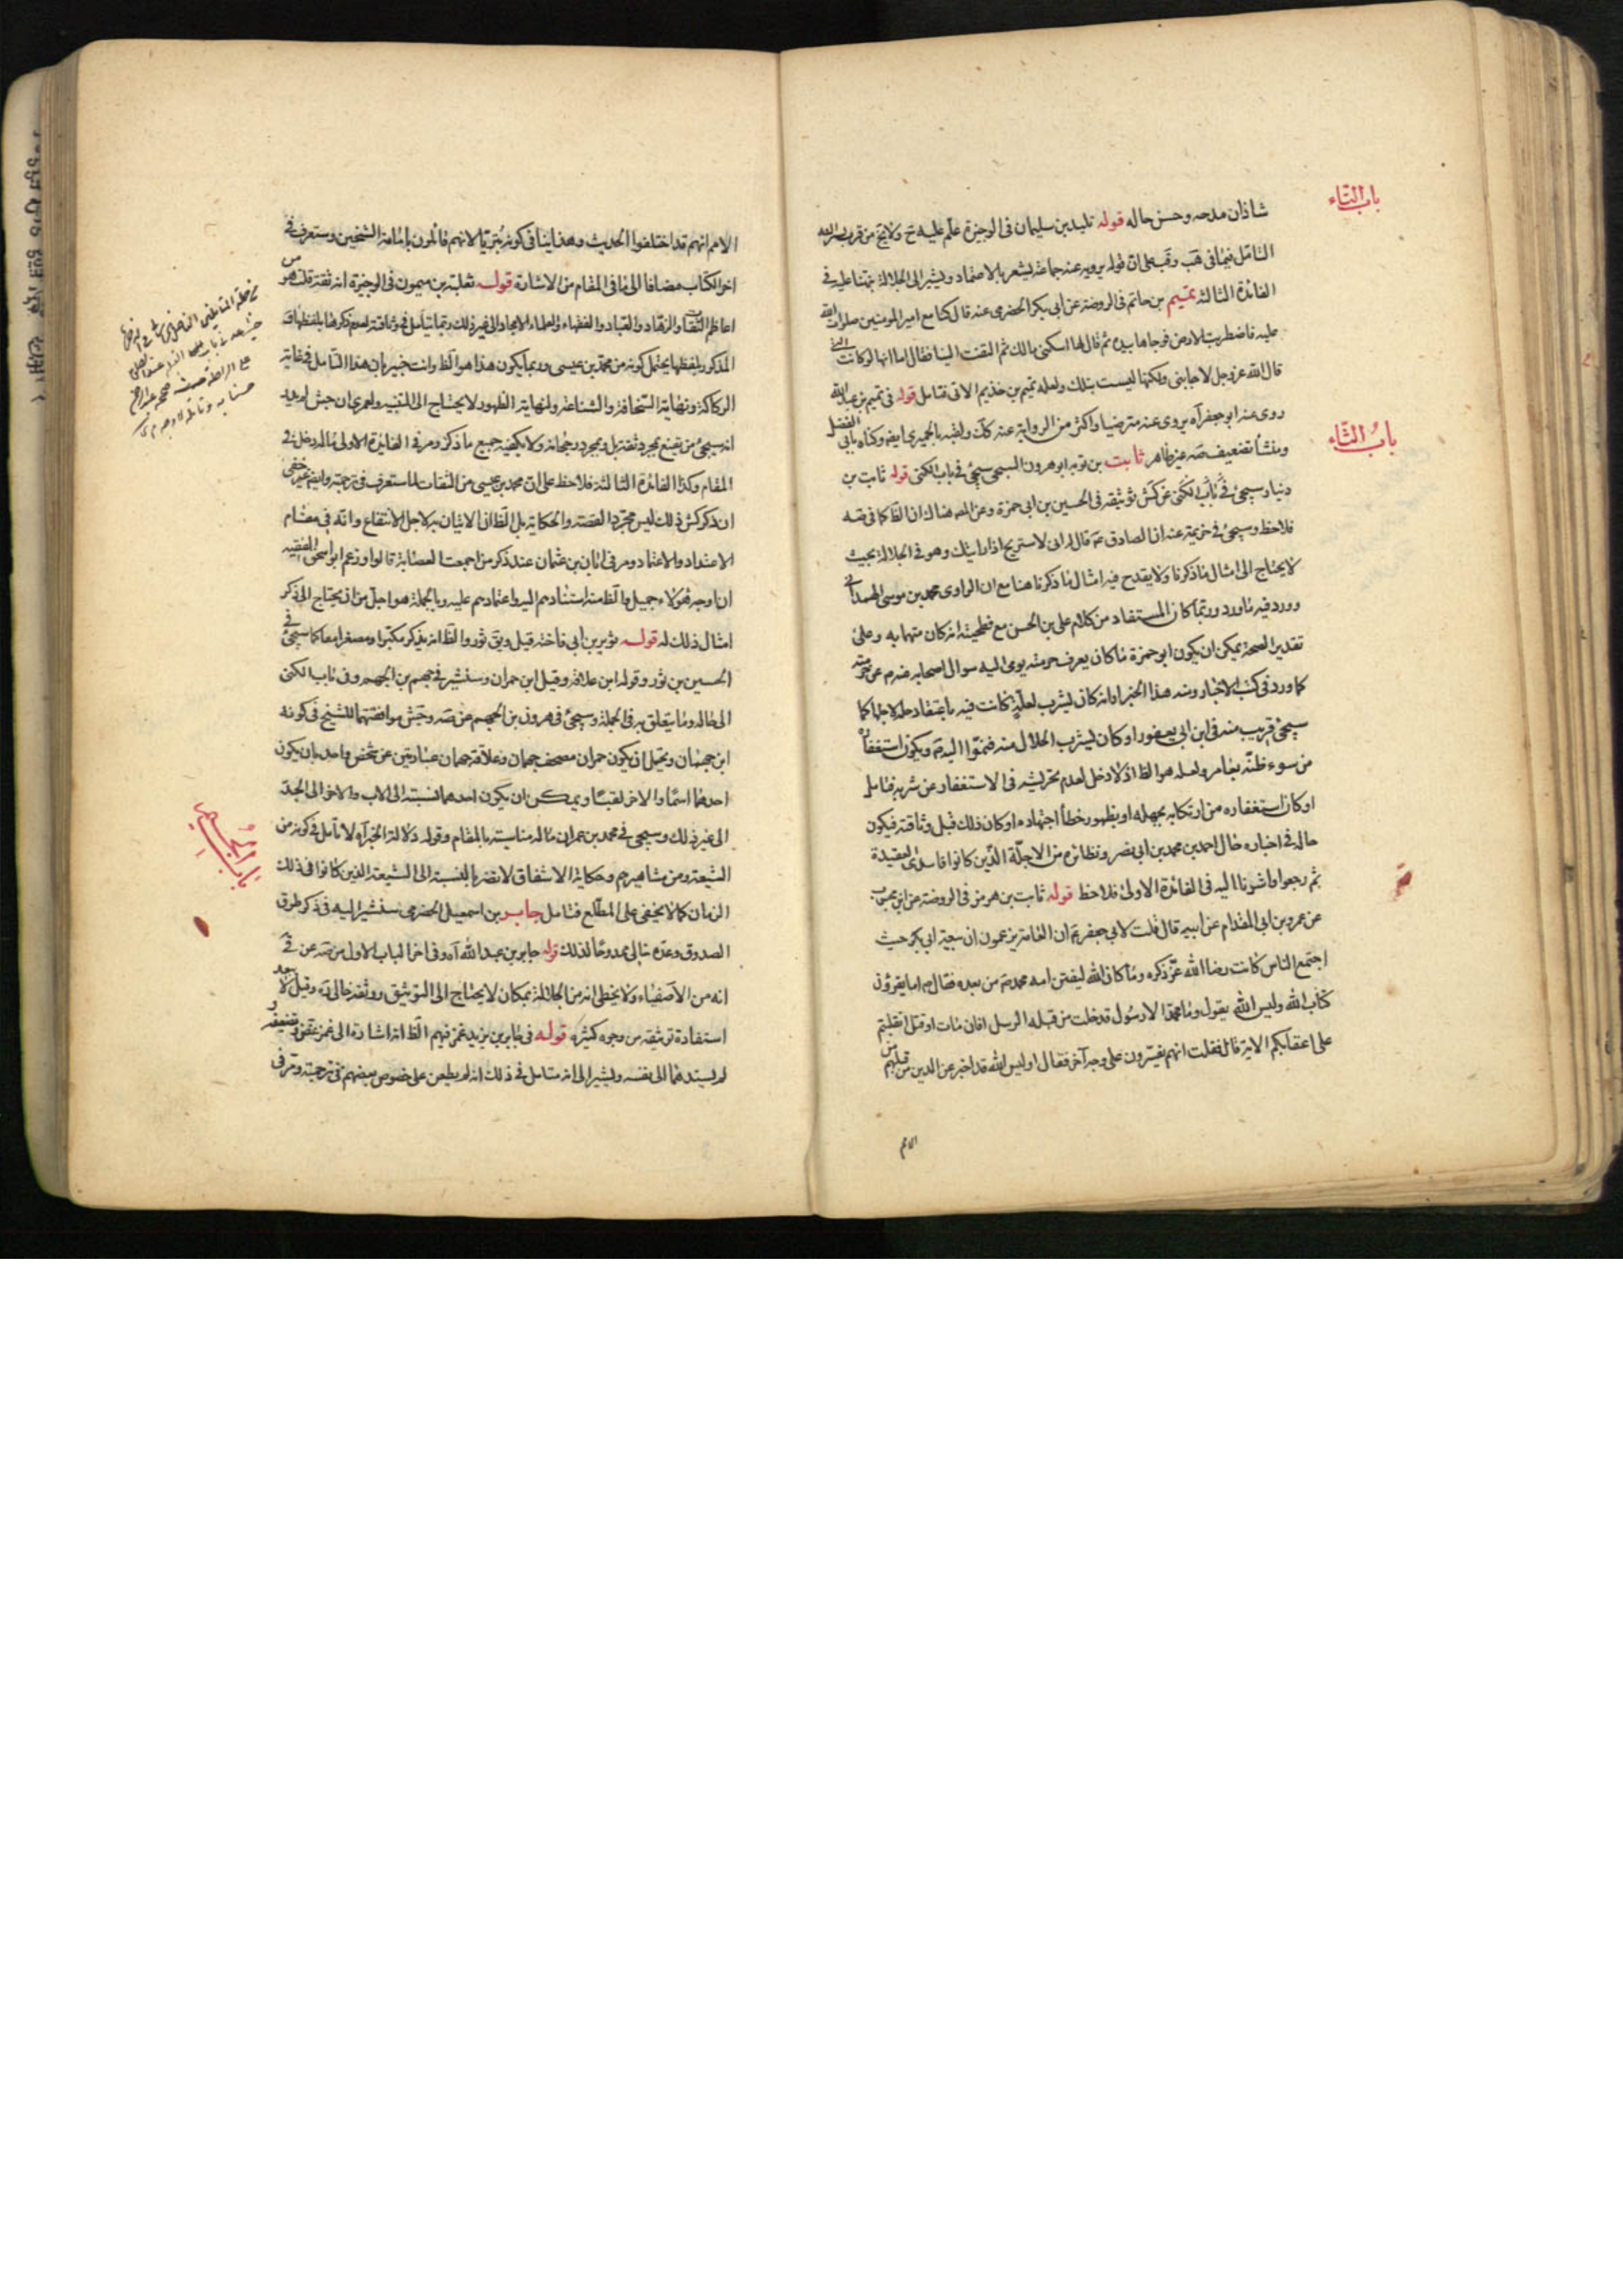 باب التاء
شاذان مدحه وحسن حاله قوله تليد بن سليمان فى الوجيزة علّم عليه ح ولا يخ من قرب
التامّل فيما فى هب وقب على ان قوله يرويه عنه جماعة يشعر بالاعتماد ويشير الى الجلالة نبهنا عليه فى
الفائدة الثالثة تميم بن حاتم فى الروضة عن ابى بكر الحضرمى عنه قال كنا مع امير المومنين صلوات الله
عليه فاضطربت الارض فوجاها بيده ثم قال لها اسكنى مالك ثم التفت الينا فقال اما انها لو كانت التى
قال الله عز وجل لاجابتنى ولكنها ليست بتلك ولعله تميم بن حذيم الاتى فتامل قوله فى تميم بن عبد الله
روى عنه ابو جعفر آه يروى عنه مترضيا واكثر من الرواية عنه كك ولقبه بالحميرى ايضا وكناه بابى الفضل
ومنشأ تضعيف صه غير ظاهر ثابت بن توبه ابو هرون السبحى سيجئ فى باب الكنى قوله ثابت بن
باب الثاء
دينار سيجئ فى باب الكنى عن كش توثيقه فى الحسين بن ابى حمزة وعن المص هناك ان الظ كما فى صه
فلاحظ وسيجئ فى خزيمة عنه ان الصادق ع قال له انى لاستريح اذا رايتك وهو فى الجلالة بحيث
لا يحتاج الى امثال ما ذكرنا ولا يقدح فيه امثال ما ذكرنا هنا مع ان الراوى محمد بن موسى الهمدانى
وورد فيه ما ورد وربّما كان المستفاد من كلام على بن الحسن مع فطحيته انه كان متهما به وعلى
تقدير الصحة يمكن ان يكون ابو حمزة ما كان يعرف حرمته يومى اليه سوال اصحابه منهم عن حرمته
كما ورد فى كتب الاخبار ومنه هذا الخبر او انه كان يشرب لعلّة كانت فيه باعتقاد حله لاجلها كما
سيجئ قريب منه فى ابن ابى يعفور او كان يشرب الحلال منه فنمّوا اليه ع ويكون استغفاره
من سوء ظنّه بعامر ولعله هو الظ اذ لا دخل لعدم تحريشه فى الاستغفار عن شربه فتامل
او كان استغفاره من ارتكابه بجهله او بظهور خطأ اجتهاده او كان ذلك قبل وثاقته فيكون
حاله فى اخباره حال احمد بن محمد بن ابى نصر ونظائره من الاجلّة الذين كانوا فاسدى العقيدة
ثم رجعوا واشرنا اليه فى الفائدة الاولى فلاحظ قوله ثابت بن هرمز فى الروضة عن ابن محبوب
عن عمرو بن ابى المقدام عن ابيه قال قلت لابى جعفر ع ان العامة يزعمون ان بيعة ابى بكر حيث
اجتمع الناس كانت رضا الله عزّ ذكره وما كان الله ليفتن امه محمد ص من بعده فقال ع اما يقرؤن
كتاب الله وليس الله يقول وما محمّد الا رسول قد خلت من قبله الرسل افان مات او قتل انقلبتم
على اعقابكم الاية قال فقلت انهم يفسّرون على وجه آخر فقال او ليس الله قد اخبر عن الذين من قبلهم من
الامم
الامم انهم قد اختلفوا الحديث وهذا ينافى كونه بتريا لانهم قائلون بامامة الشيخين وستعرف فى
اخر الكتاب مضافا الى ما فى المقام من الاشارة قوله ثعلبة بن ميمون فى الوجيزة انه ثقة قلت هو من
اعاظم الثقات والزهّاد والعباد والفقهاء والعلماء الامجاد الى غير ذلك وربما يتامل فى وثاقته لعدم ذكرها بلفظها
المذكور بلفظها يحتمل كونه من محمد بن عيسى وربما يكون هذا هو الظ وانت خبير بان هذا التامل فى غاية
الركاكة ونهاية السخافة والشناعة ولنهاية الظهور لا يحتاج الى التنبيه ولعمرى ان جش
انه سيجئ من يقنع بمجرد ثقة بل وبمجرد رجحانه ولا يكفيه جميع ما ذكر ومر فى الفايدة الاولى ماله دخل فى
المقام وكذا الفائدة الثالثة فلاحظ على ان محمد بن عيسى من الثقات لما ستعرف فى ترجمته وايضا غير خفى
ان ذكر كش ذلك ليس مجرّد القصة والحكاية بل الظ ان الاتيان به لاجل الانتفاع وانّه فى مقام
الاعتداد والاعتماد ومر فى ابان بن عثمان عند ذكر من اجمعت العصابة قالوا وزعم ابو اسحق الفقيه
ان اوجه هؤلاء جميل والظ منه استنادهم اليه واعتمادهم عليه وبالجملة هو اجلّ من ان يحتاج الى ذكر
امثال ذلك له قوله ثوير بن ابى فاخته قيل ويق ثور والظ انه يذكر مكبّرا ومصغرا معا كما سيجئ فى
الحسين بن ثور وقوله ابن علاقة وقيل ابن حمران وسنشير فى جهم بن الجهم وفى باب الكنى
الى حاله وما يتعلق به فى الجملة وسيجئ فى هرون بن الجهم عن صه وجش موافقتهما للشيخ فى كونه
ابن جمهان ويحتمل ان يكون حمران مصحف جمهان وعلاقة جمهان عبارتين عن شخص واحد بان يكون
احدهما اسمًا والاخر لقبًا ويمكن ان يكون احدهما نسبته الى الاب والاخر الى الجدّ
الى غير ذلك وسيجى فى محمد بن عمران ماله مناسبة بالمقام وقوله دلالة الخبر آه لا تامل فى كونه من
الشيعة ومن مشاهيرهم وحكاية الاشفاق لا تضر بالنسبة الى الشيعة الذين كانوا فى ذلك
باب الجيم
الزمان كما لا يخفى على المطّلع فتامل جابر بن اسمعيل الحضرمى سنشير اليه فى ذكر طرق
الصدوق وعدّه خالى ممدوحًا لذلك قوله جابر بن عبد الله آه وفى اخر الباب الاول من صه عن قى
انه من الاصفياء ولا يخفى انه من الجلالة بمكان لا يحتاج الى التوثيق ووثقه خالى ره وقيل لا يبعد
استفادة توثيقه من وجوه كثيرة قوله فى جابر بن يزيد غمز فيهم الظ انه اشارة الى غمز غض وتضعيفه و
لم يسندهما الى نفسه ويشير الى انه متامل فى ذلك انه لم يطعن على خصوص بعضهم فى ترجمته ومرّ فى